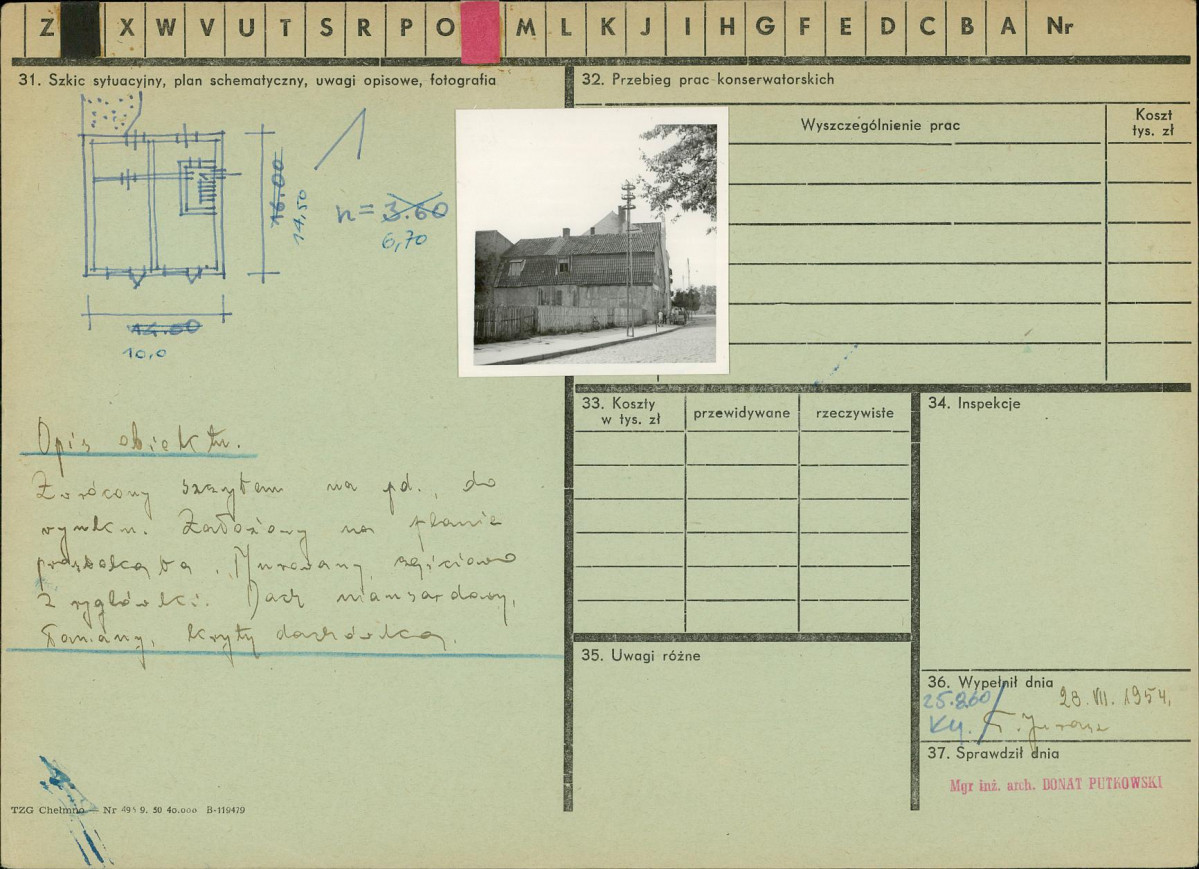 Z X W V U T S R P O M L K J I H G F E D C B A Nr
31. Szkic sytuacyjny, plan schematyczny, uwagi opisowe, fotografia
16.00
14,50
h = 3.60
6,70
14.00
10,0
Opis obiektu.
Zwrócony szczytem na pd., do
rynku. Założony na planie
prostokąta. Murowany, częściowo
z ryglówki. Dach mansardowy,
łamany, kryty dachówką.
TZG Chełmno — Nr 495 9. 50 40.000 B-119479
32. Przebieg prac konserwatorskich
Wyszczególnienie prac
Koszt
tys. zł
33. Koszty
w tys. zł
przewidywane
rzeczywiste
34. Inspekcje
35. Uwagi różne
36. Wypełnił dnia
25.8.60 28. VII. 1954.
37. Sprawdził dnia
Mgr inż. arch. DONAT PUTKOWSKI